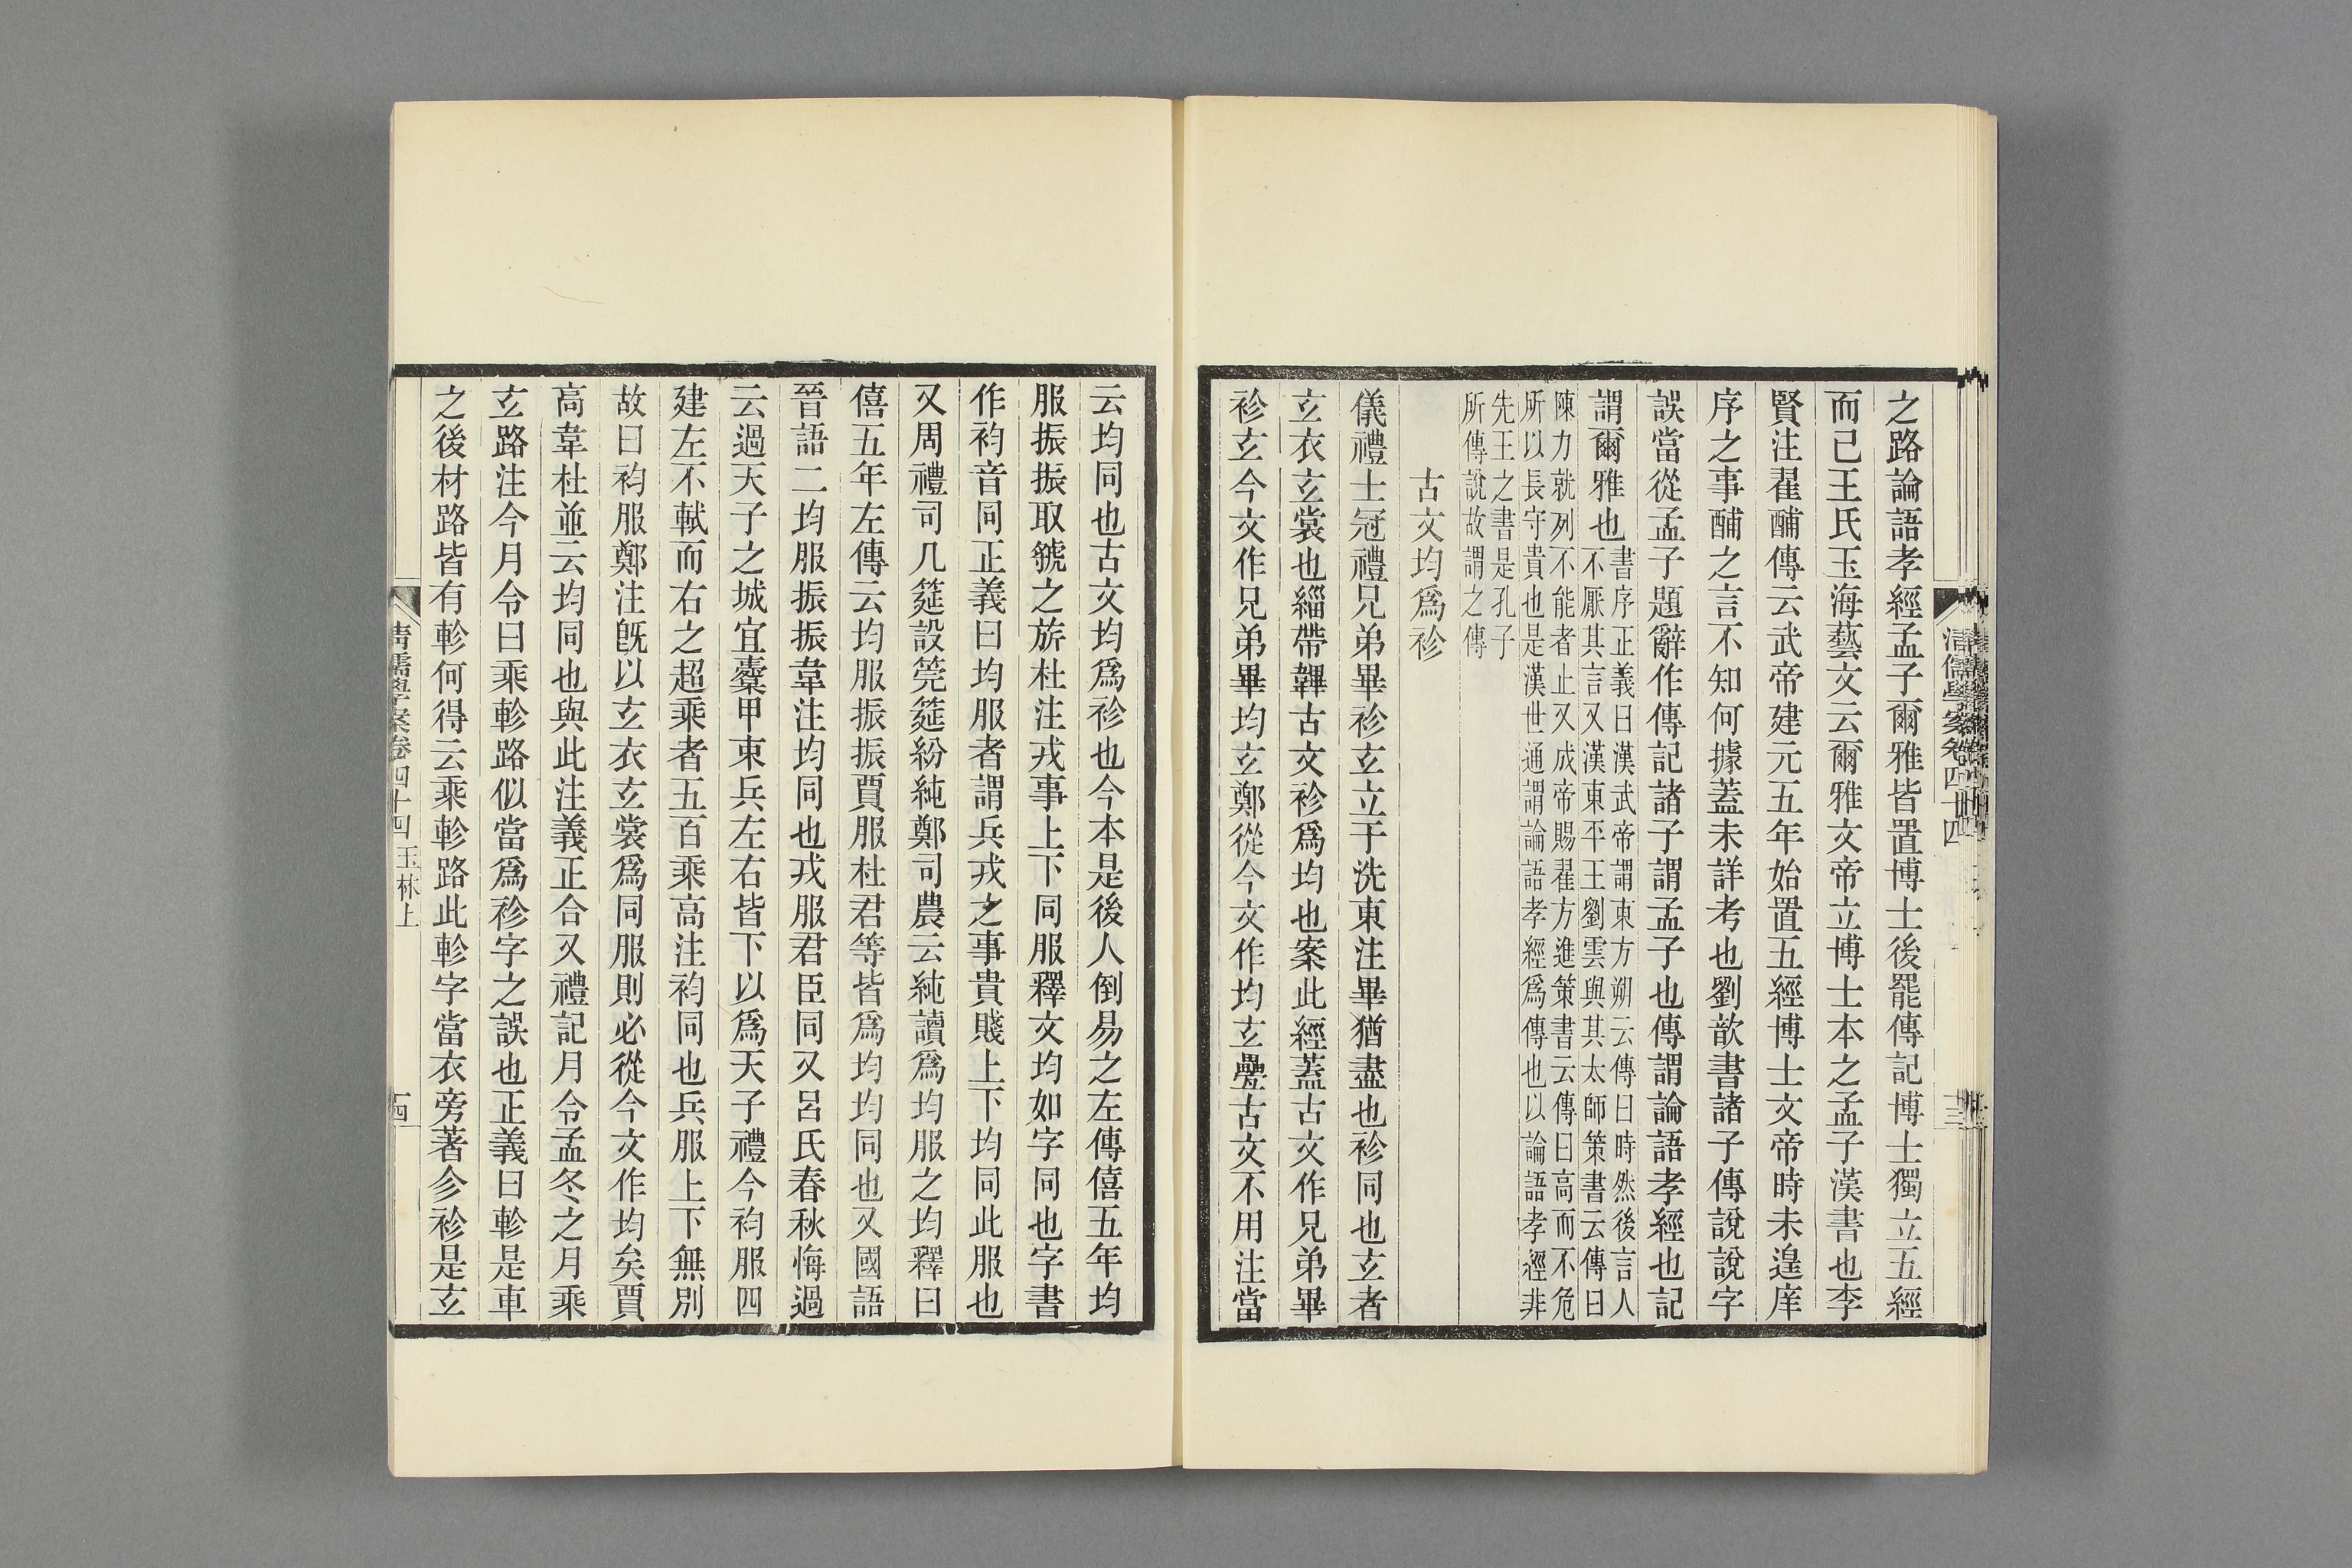 之路論語孝經孟子爾雅皆置博士後罷傳記博士獨立五經
而已王氏玉海藝文云爾雅文帝立博士本之孟子漢書也李
賢注翟酺傳云武帝建元五年始置五經博士文帝時未遑庠
序之事酺之言不知何據蓋未詳考也劉歆書諸子傳說說字
誤當從孟子題辭作傳記諸子謂孟子也傳謂論語孝經也記
謂爾雅也
書序正義曰漢武帝謂東方朔云傳曰時然後言人
不厭其言又漢東平王劉雲與其太師策書云傳曰
陳力就列不能者止又成帝賜翟方進策書云傳曰高而不危
所以長守貴也是漢世通謂論語孝經爲傳也以論語孝經非
先王之書是孔子
所傳說故謂之傳
古文均爲袗
儀禮士冠禮兄弟畢袗玄立于洗東注畢猶盡也袗同也玄者
玄衣玄裳也緇帶韠古文袗爲均也案此經蓋古文作兄弟畢
袗玄今文作兄弟畢均玄鄭從今文作均玄疊古文不用注當
云均同也古文均爲袗也今本是後人倒易之左傳僖五年均
服振振取虢之旂杜注戎事上下同服釋文均如字同也字書
作袀音同正義曰均服者謂兵戎之事貴賤上下均同此服也
又周禮司几筵設莞筵紛純鄭司農云純讀爲均服之均釋曰
僖五年左傳云均服振振賈服杜君等皆爲均均同也又國語
晉語二均服振振韋注均同也戎服君臣同又呂氏春秋悔過
云過天子之城宜櫜甲束兵左右皆下以爲天子禮今袀服四
建左不軾而右之超乘者五百乘高注袀同也兵服上下無別
故曰袀服鄭注旣以玄衣玄裳爲同服則必從今文作均矣賈
高韋杜並云均同也與此注義正合又禮記月令孟冬之月乘
玄路注今月令曰乘軫路似當爲袗字之誤也正義曰軫是車
之後材路皆有軫何得云乘軫路此軫字當衣旁著㐱袗是玄
清儒學案卷四十四 玉林上
四